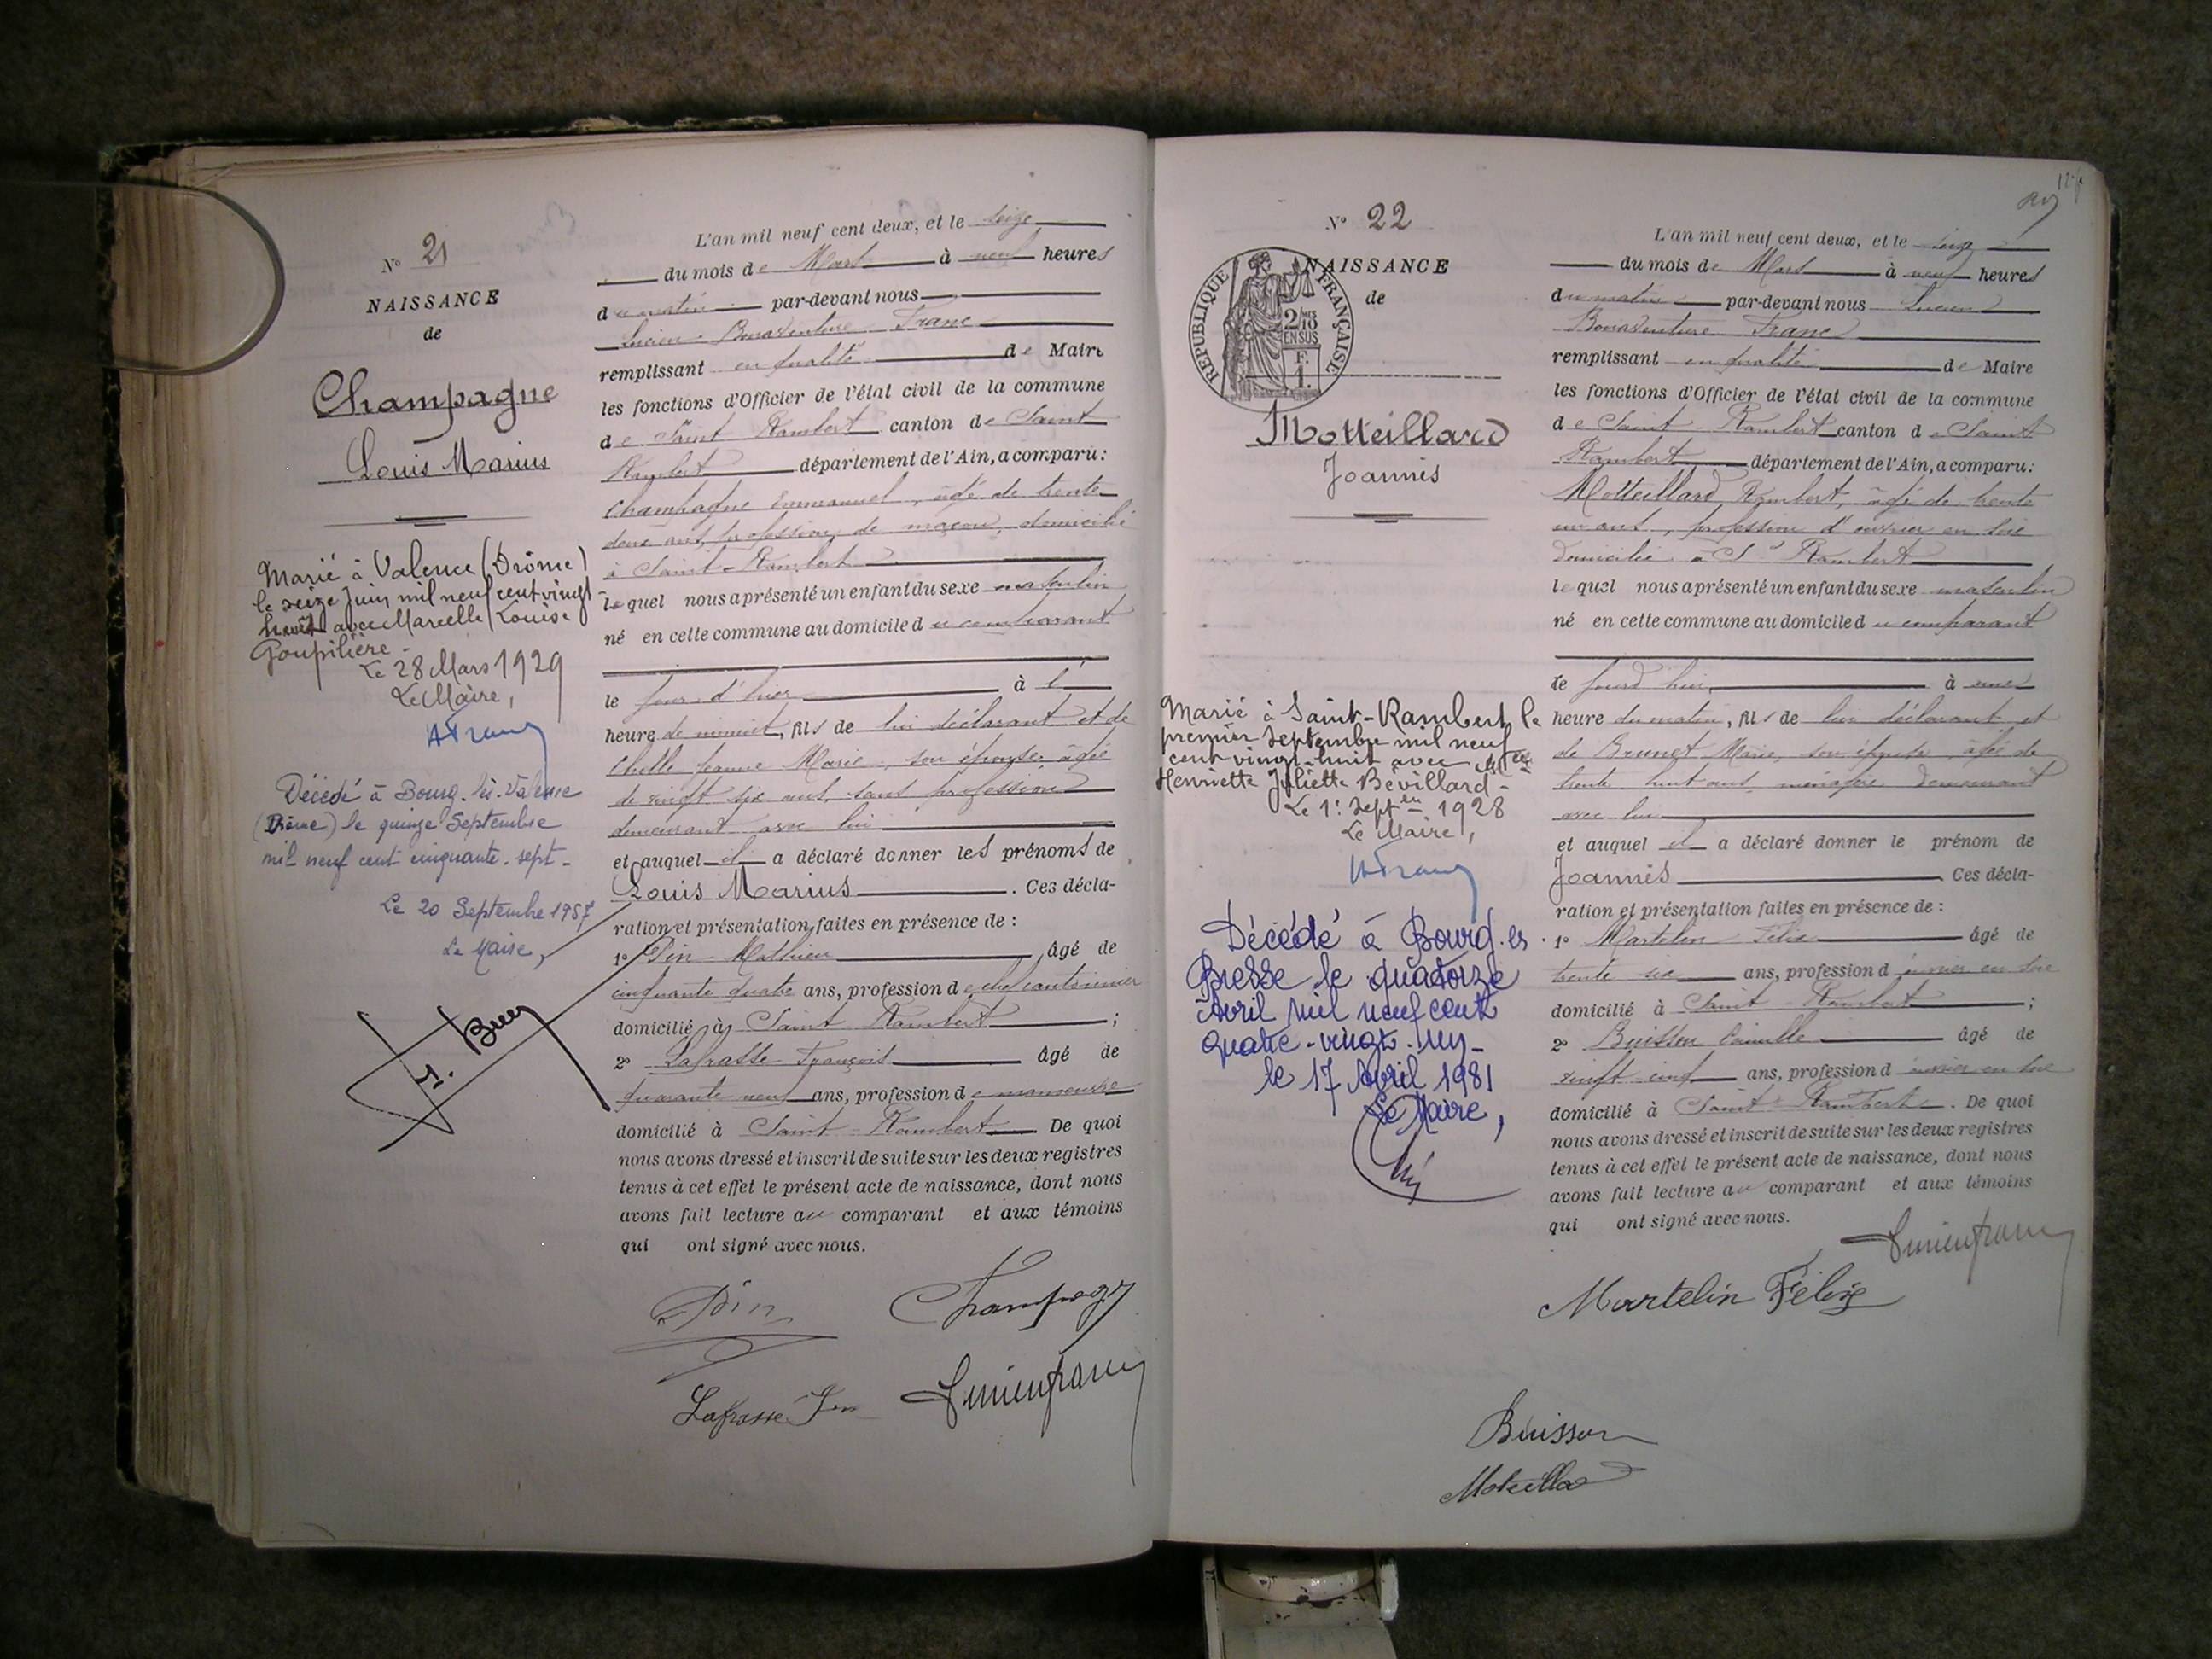 N° 21
NAISSANCE
de
Champagne
Louis Marius
Marié à Valence (Drôme)
le seize juin mil neuf cent vingt-
huit avec Marcelle Louise
Goupilière -
Le 28 Mars 1929
Le Maire,
Décédé à Bourg-lès-Valence
(Drôme) le quinze Septembre
mil neuf cent cinquante-sept-
Le 20 Septembre 1957
Le Maire,
L'an mil neuf cent deux, et le seize
du mois de Mars à neuf heures
du matin par-devant nous
Lucien Bonaventure Franc
remplissant en qualité de Maire
les fonctions d'Officier de l'état civil de la commune
de Saint Rambert canton de Saint
Rambert département de l'Ain, a comparu:
Champagne Emmanuel, âgé de trente
deux ans, profession de maçon, domicilié
à Saint-Rambert
lequel nous a présenté un enfant du sexe masculin
né en cette commune au domicile du comparant
le jour d'hier à l'
heure de minuit, fils de lui déclarant et de
Chelle Jeanne Marie, son épouse, âgée
de vingt six ans, sans profession
demeurant avec lui
et auquel il a déclaré donner les prénoms de
Louis Marius. Ces décla-
ration et présentation faites en présence de :
1° Pin Mathieu âgé de
cinquante quatre ans, profession de chef cantonnier
domicilié à Saint Rambert ;
2° Lafrasse François âgé de
quarante neuf ans, profession de manoeuvre
domicilié à Saint-Rambert De quoi
nous avons dressé et inscrit de suite sur les deux registres
tenus à cet effet le présent acte de naissance, dont nous
avons fait lecture au comparant et aux témoins
qui ont signé avec nous.
Pin
Champagn
Lafrasse
Lucien Franc
N° 22
NAISSANCE
de
REPUBLIQUE FRANÇAISE
2/10
EN SUS
F.
1.
Motteillard
Joannès
Marié à Saint-Rambert, le
premier Septembre mil neuf
cent vingt-huit avec
Henriette Juliette Bévillard -
Le 1er Septbre 1928
Le Maire,
Décédé à Bourg-es
Bresse le quatorze
Avril mil neuf cent
quatre-vingt-un-
le 17 Avril 1981
Le Maire,
L'an mil neuf cent deux, et le seize
du mois de Mars à neuf heures
du matin par-devant nous Lucien
Bonaventure Franc
remplissant en qualité de Maire
les fonctions d'Officier de l'état civil de la commune
de Saint Rambert canton de Saint
Rambert département de l'Ain, a comparu:
Motteillard Rambert, âgé de trente
un ans, profession d'ouvrier en soie
domicilié à St Rambert
lequel nous a présenté un enfant du sexe masculin
né en cette commune au domicile du comparant
le jourd'hui à une
heure du matin, fils de lui déclarant et
de Brunet Marie, son épouse âgée de
trente huit ans, ménagère demeurant
avec lui
et auquel il a déclaré donner le prénom de
Joannès Ces décla-
ration et présentation faites en présence de :
1° Martelin Félix âgé de
trente six ans, profession d'ouvrier en soie
domicilié à Saint Rambert ;
2° Buisson Camille âgé de
vingt cinq ans, profession d'ouvrier en soie
domicilié à Saint Rambert. De quoi
nous avons dressé et inscrit de suite sur les deux registres
tenus à cet effet le présent acte de naissance, dont nous
avons fait lecture au comparant et aux témoins
qui ont signé avec nous.
Lucien Franc
Martelin Félix
Buisson
Moteillard